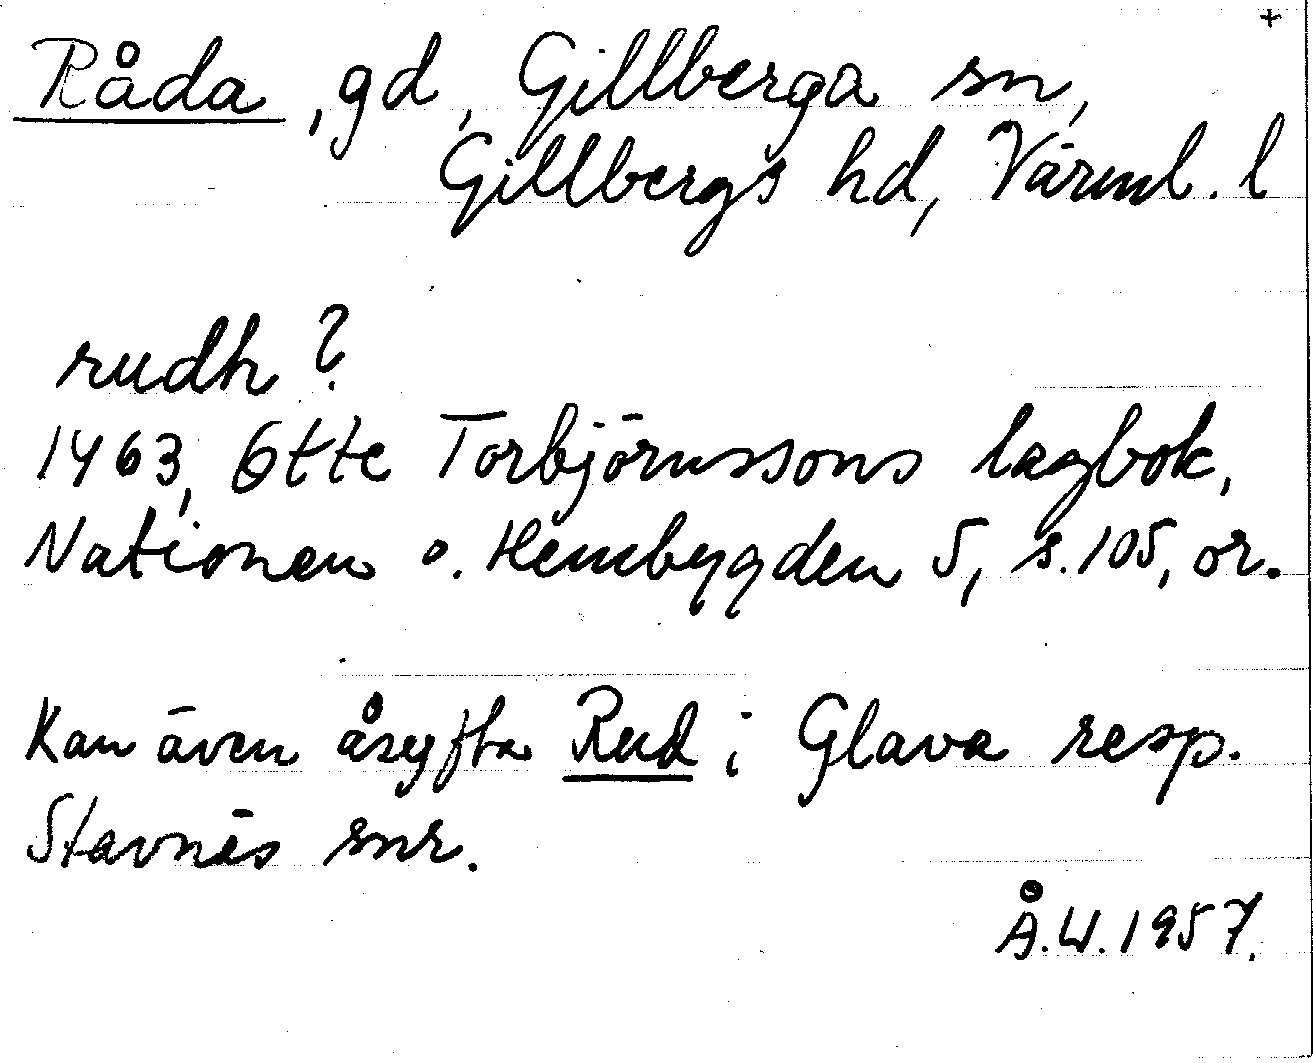 +
Råda, gd, Gillberga sn,
Gillbergs hd, Värml. l
rudh?
1463, Otte Torbjörnssons lagbok,
Nationen o. Hembygden 5, s. 105, or.
Kan även åsyfta Rud i Glava resp.
Stavnäs snr.
Å.W. 1957.